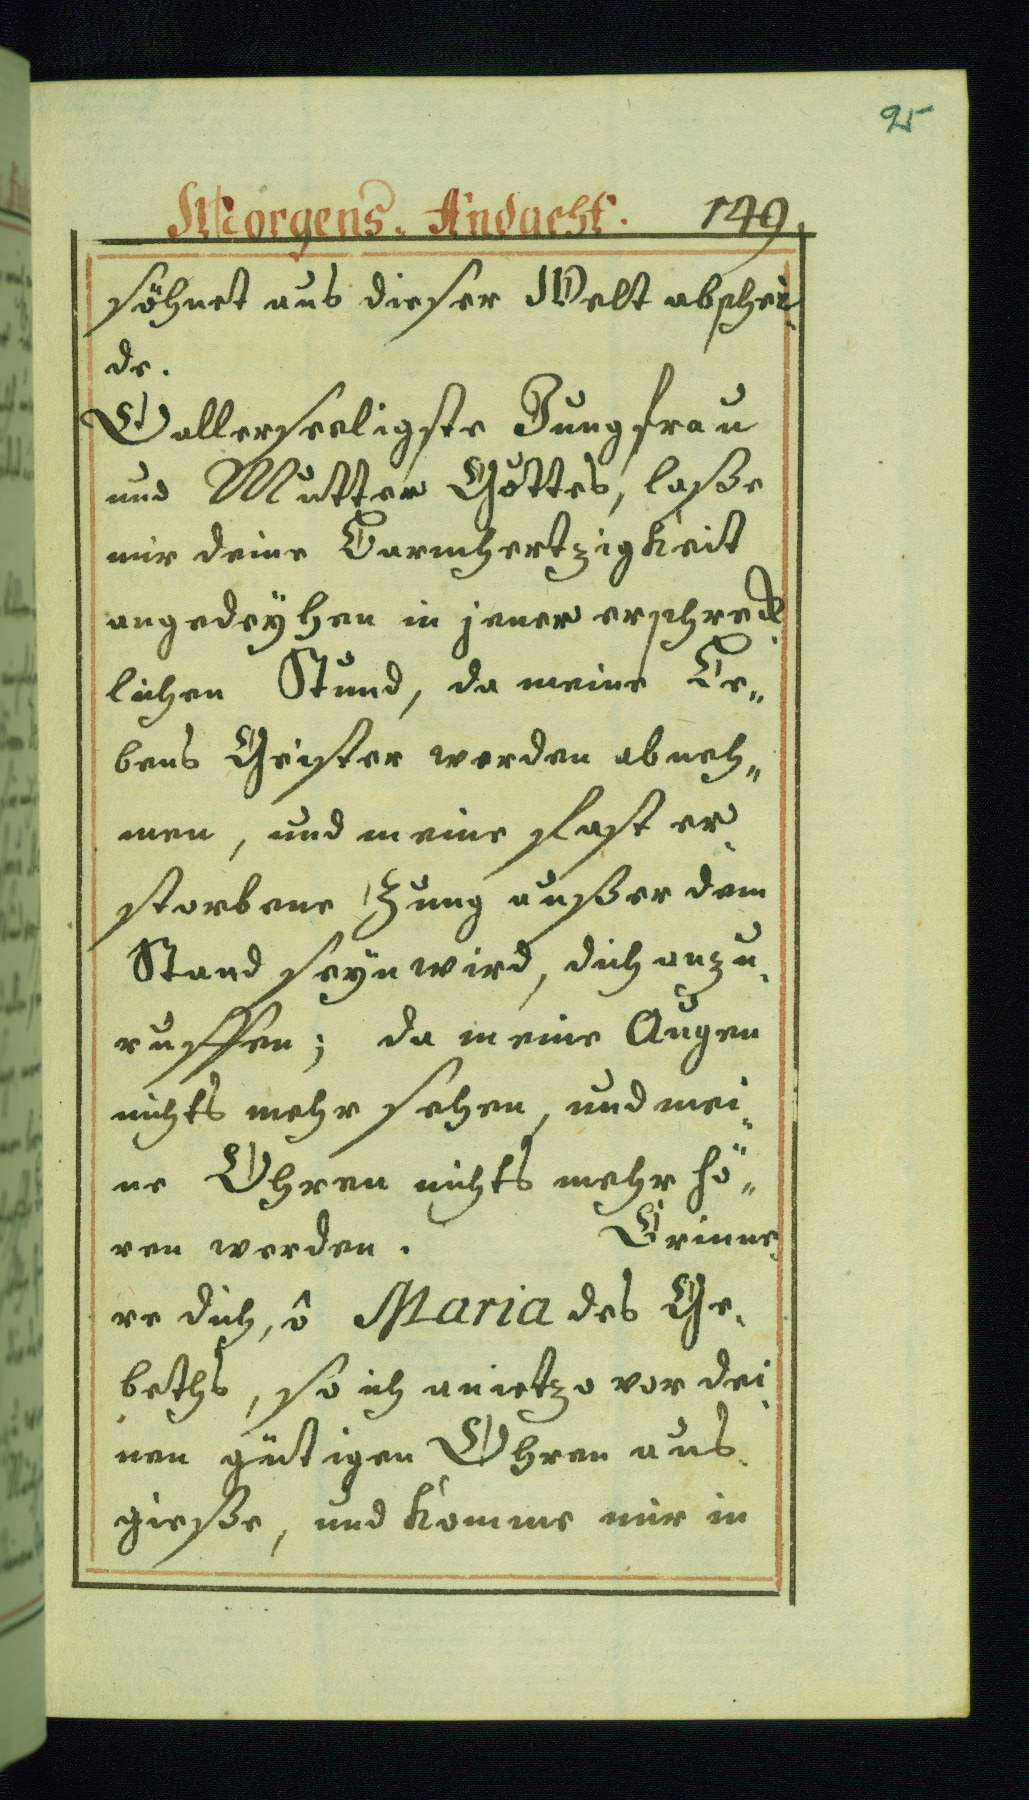 25
Morgens. Andacht. 149.
söhnet aus dieser Welt abschei,
de.
O allerseeligste Jungfrau
und Mutter Gottes, laße
mir deine Barmhertzigkeit
angedeÿhen in jener erschreck,
lichen Stund, da meine Le„
bens Geister werden abneh„
men, und meine fast er,
storbene Zung außer dem
Stand seÿn wird, dich anzu,
ruffen; da meine Augen
nichts mehr sehen, und mei„
ne Ohren nichts mehr hö„
ren werden. Erinne,
re dich, ô Maria des Ge,
beths, so ich anietzo vor dei,
nen gütigen Ohren aus,
gieße, und komme mir in